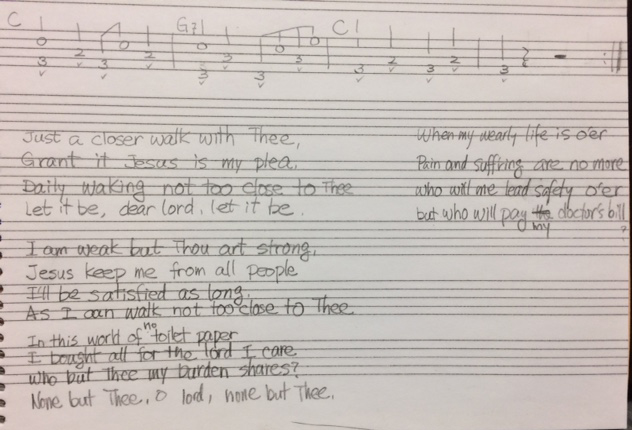 C G7 C
0 0 0 0 0
2 2 3 3 2 2
3 3 3 3 3 3 3
Just a closer walk with Thee,
Grant it Jesus is my plea.
Daily waking not too close to Thee
Let it be, dear lord, let it be.
I am weak but Thou art strong,
Jesus keep me from all people
I'll be satisfied as long,
As I can walk not too close to Thee
In this world of no toilet paper
I bought all for the lord I care
who but Thee my burden shares?
None but Thee, O lord, none but Thee.
When my wearly life is o'er
Pain and suffring are no more
who will me lead safety o'er
but who will pay my doctor's bill?